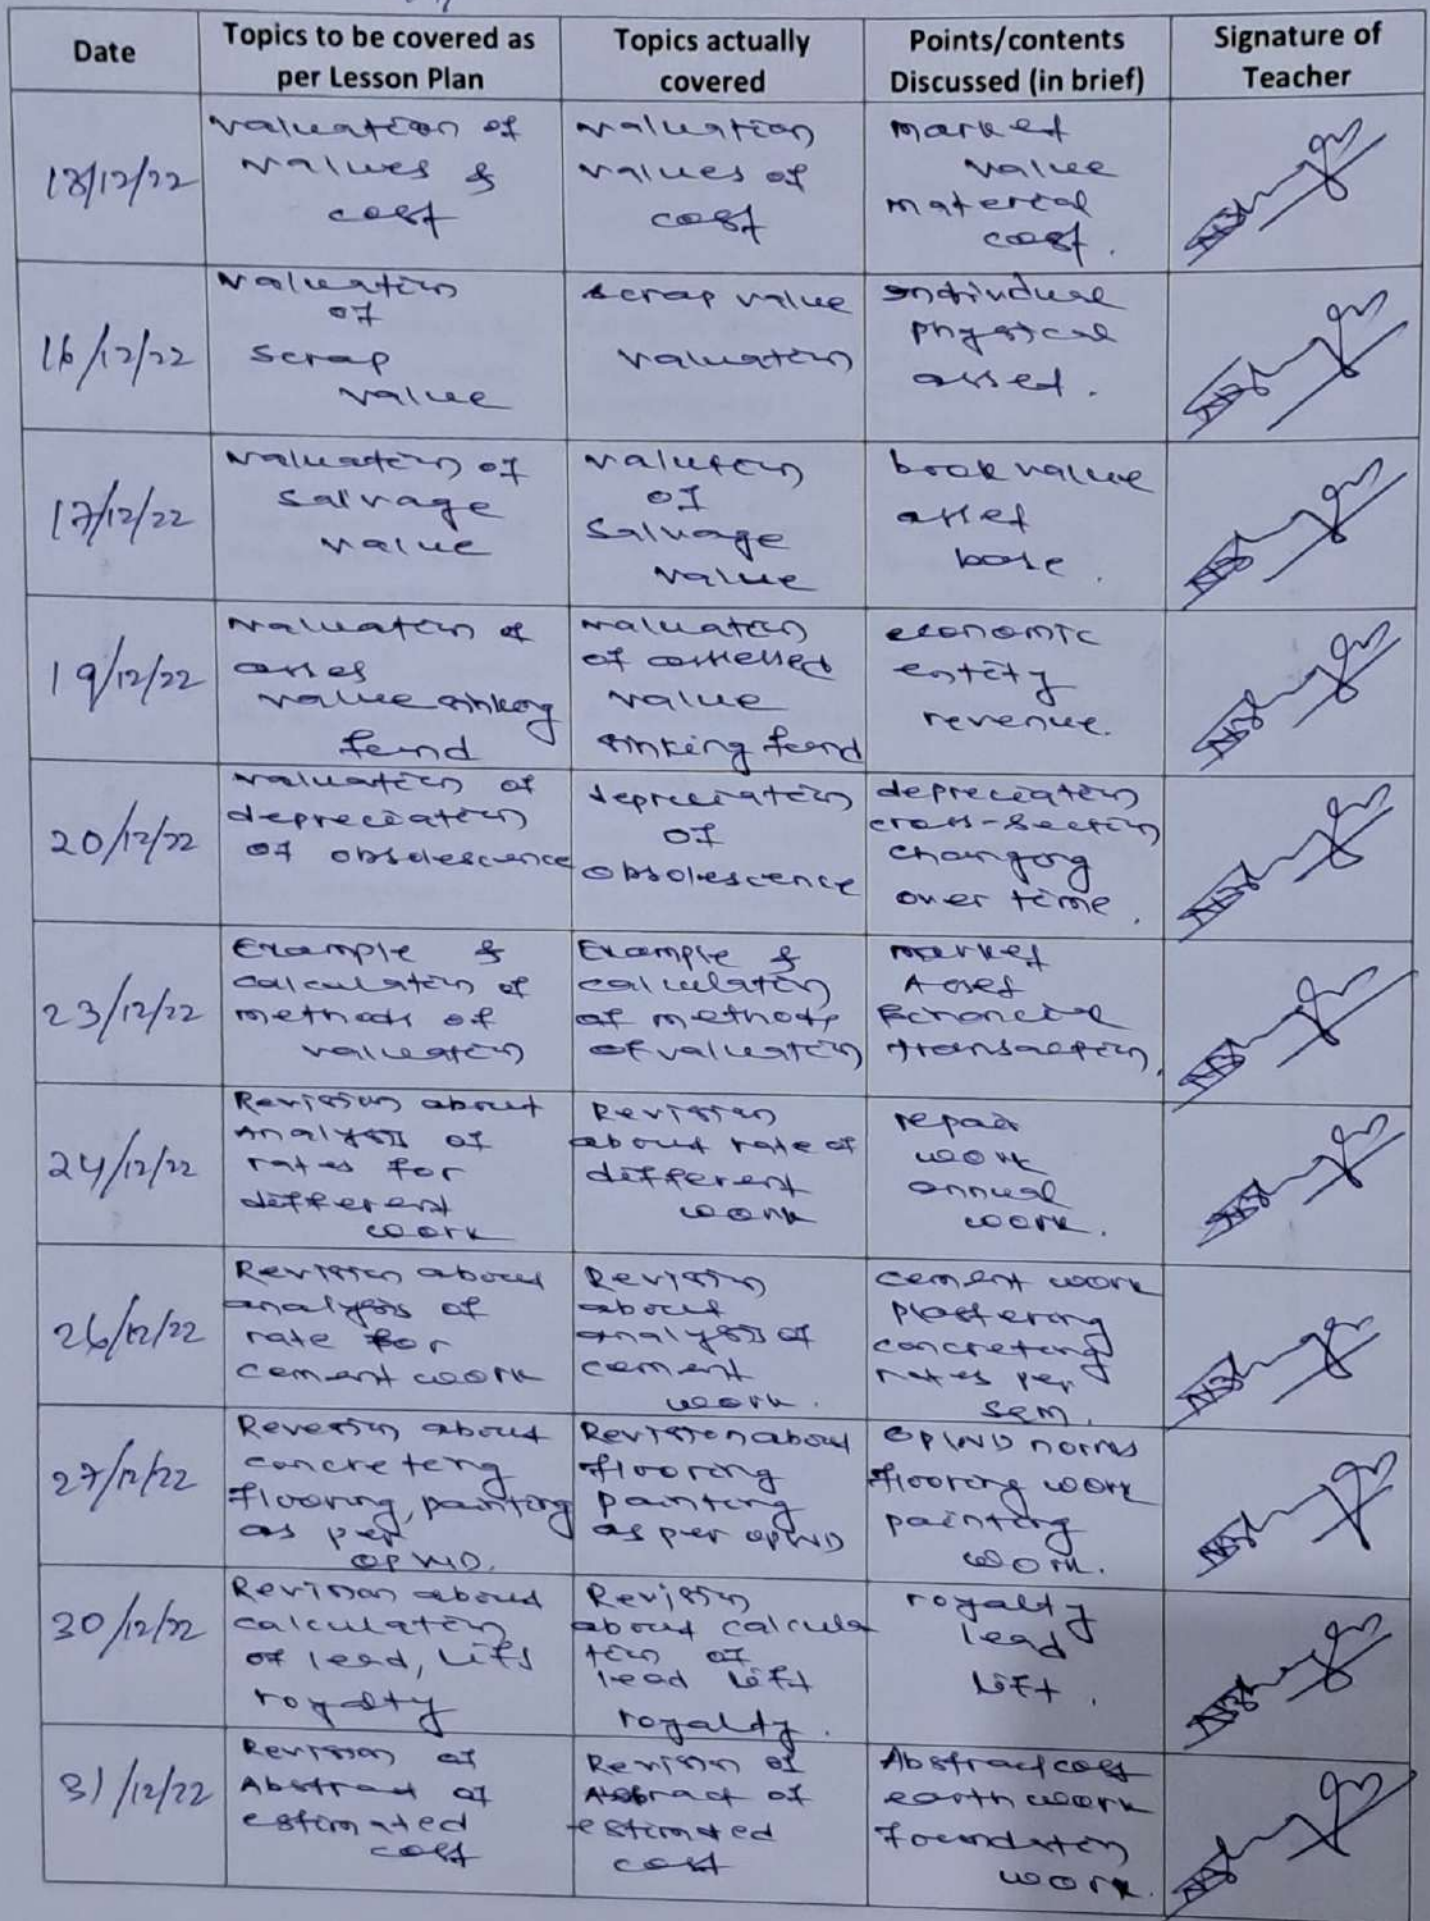 Date
Topics to be covered as
per Lesson Plan
Topics actually
covered
Points/contents
Discussed (in brief)
Signature of
Teacher
valuation of
values &
cost
valuation
values of
cost
market
value
material
cost.
16/12/22
valuation
of
scrap
value
scrap value
valuation
individual
physical
asset.
17/12/22
valuation of
salvage
value
valution
of
Salvage
value
book value
asset
base.
19/12/22
valuation of
asses
value sinking
fund
valuation
of assessed
value
sinking fund
economic
entity
revenue.
20/12/22
valuation of
depreciation
of obsolescence
depreciation
of
obsolescence
depreciation
cross-section
changing
over time.
23/12/22
Example &
calculation of
methods of
valuation
Example &
calculation
of methods
of valuation
market
Asset
financial
transaction.
24/12/22
Revision about
Analysis of
rates for
different
work
Revision
about rate of
different
work
repair
work
annual
work.
26/12/22
Revision about
analysis of
rate for
cement work
Revision
about
analysis of
cement
work.
cement work
plastering
concreting
rates per
27/12/22
Revesion about
concreting
flooring, painting
as per
OPWD.
Revision about
flooring
painting
as per OPWD
OPWD norms
flooring work
painting
work.
30/12/22
Revision about
calculation
of lead, lifts
royalty
Revision
about calcula
tion of
lead lift
royalty.
royalty
lead
lift.
31/12/22
Revision of
Abstract of
estimated
cost
Revision of
Abstract of
estimated
cost
Abstract cost
earth work
foundation
work.